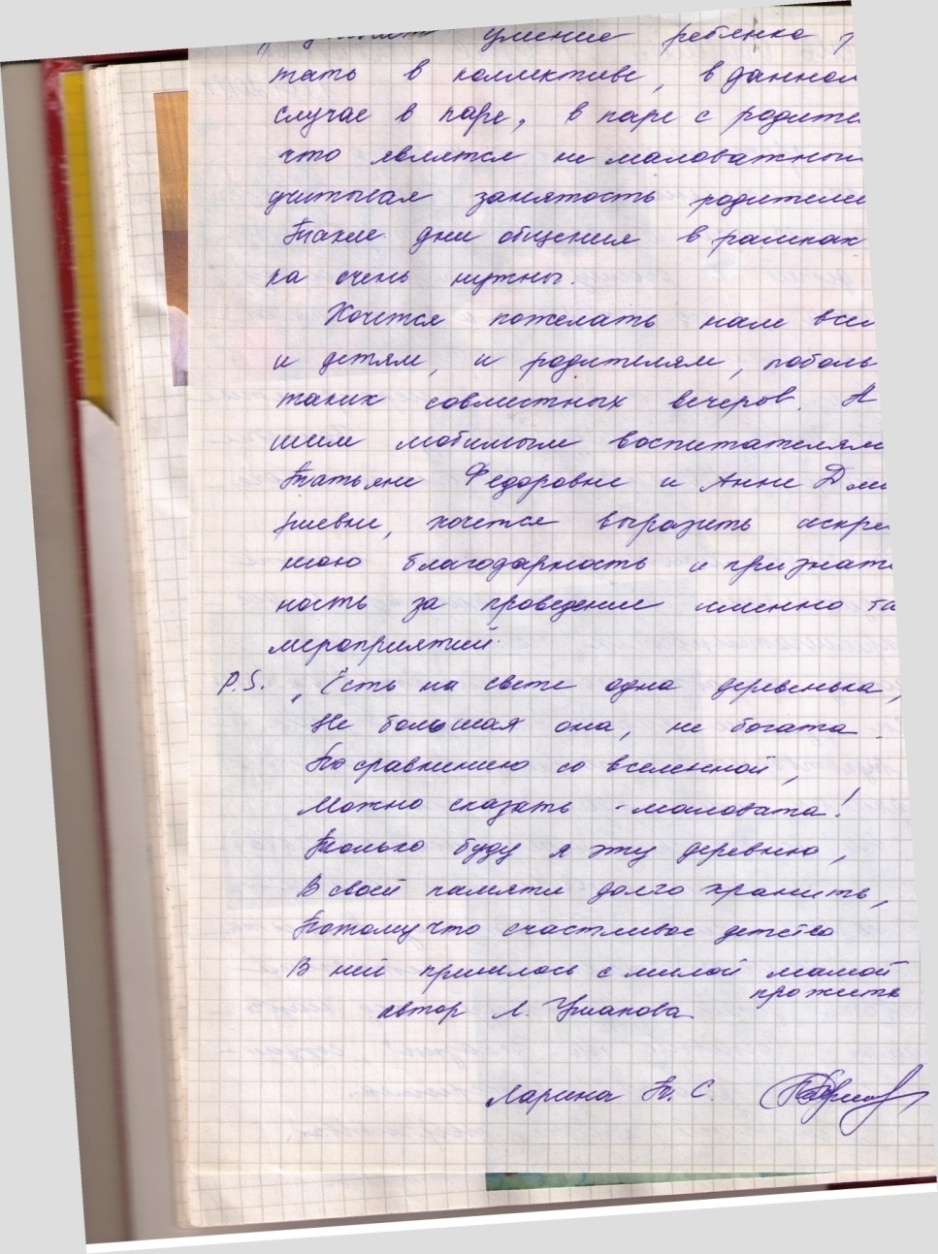 умение ребенка
тать в коллективе, в данном
случае в паре, в паре с родите
что является не маловажным
учитывая занятость родителей
Такие дни общения в рамках
ка очень нужны.
Хочется пожелать нам все
и детям, и родителям, поболь
таких совместных вечеров. А
шим любимым воспитателям
Татьяне Федоровне и Анне Дми
риевне, хочется выразить искре
нюю благодарность и признат
ность за проведение именно та
мероприятий.
P.S. „Есть на свете одна деревенька,
Не большая она, не богата.
По сравнению со вселенной,
Можно сказать - маловата!
Только буду я эту деревню,
В своей памяти долго хранить,
Потому что счастливое детство
В ней пришлось с милой мамой
прожить
автор Л. Ушакова
Ларина Т. С.